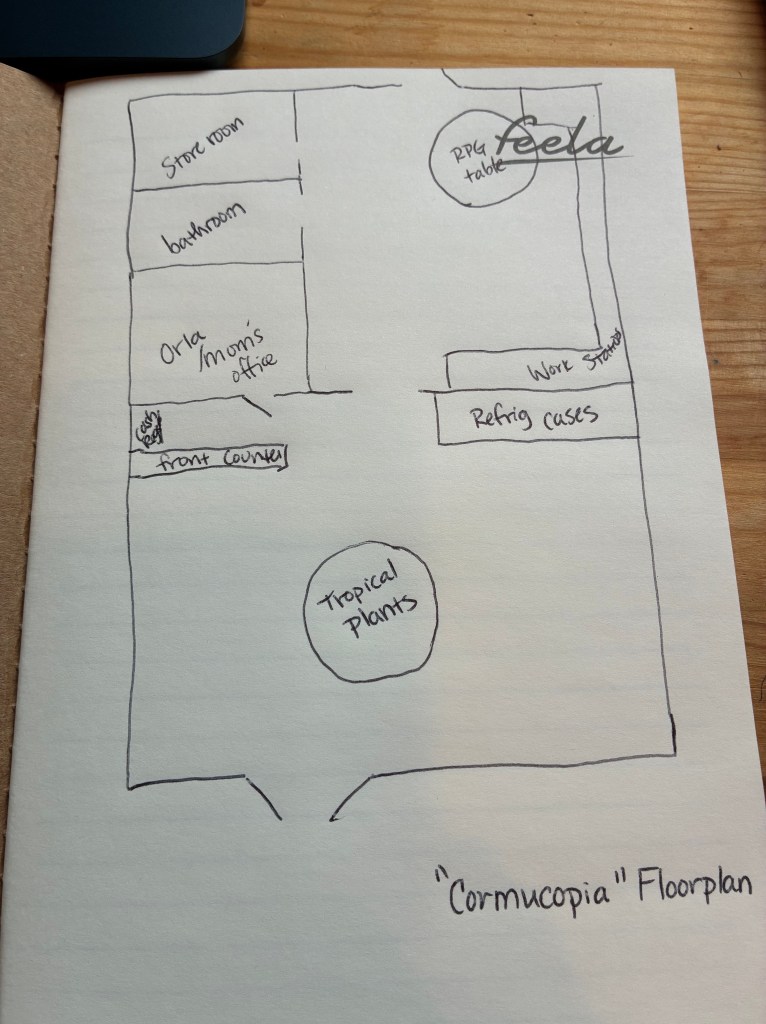 Store room
RPG
table
feela
bathroom
Orla
/mom's
office
Work Station
Cash
Reg
Refrig cases
front Counter
Tropical
Plants
"Cormucopia" Floorplan